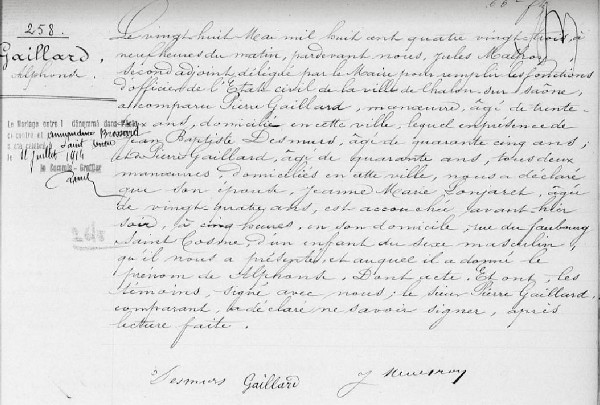 258.
Gaillard
Alphonse.
Le Mariage entre l
contre et Bernard
Saint
11 juillet 1914
le Greffier
Le vingt huit Mai mil huit cent quatre vingt trois, à
neuf heures du matin, pardevant nous, Jules
second adjoint délégué par le Maire pour remplir les fonctions
d'officier de l'Etat civil de la ville de Chalon-sur-Saône,
a comparu Pierre Gaillard, manœuvre, âgé de trente
ans, domicilié en cette ville, lequel en présence de
Jean Baptiste Desmurs, âgé de quarante cinq ans;
Pierre Gaillard, âgé de quarante ans, tous deux
manœuvres, domiciliés en cette ville, nous a déclaré
que son épouse, Jeanne Marie Lonjaret, âgée
de vingt-quatre ans, est accouchée avant hier
soir, à cinq heures, en son domicile, rue du faubourg
Saint Cosme, d'un enfant du sexe masculin,
qu'il nous a présenté, et auquel il a donné le
prénom de Alphonse. Dont acte. Et ont, les
témoins, signé avec nous; le sieur Pierre Gaillard
comparant, a déclaré ne savoir signer, après
lecture faite.
258
Desmurs Gaillard J